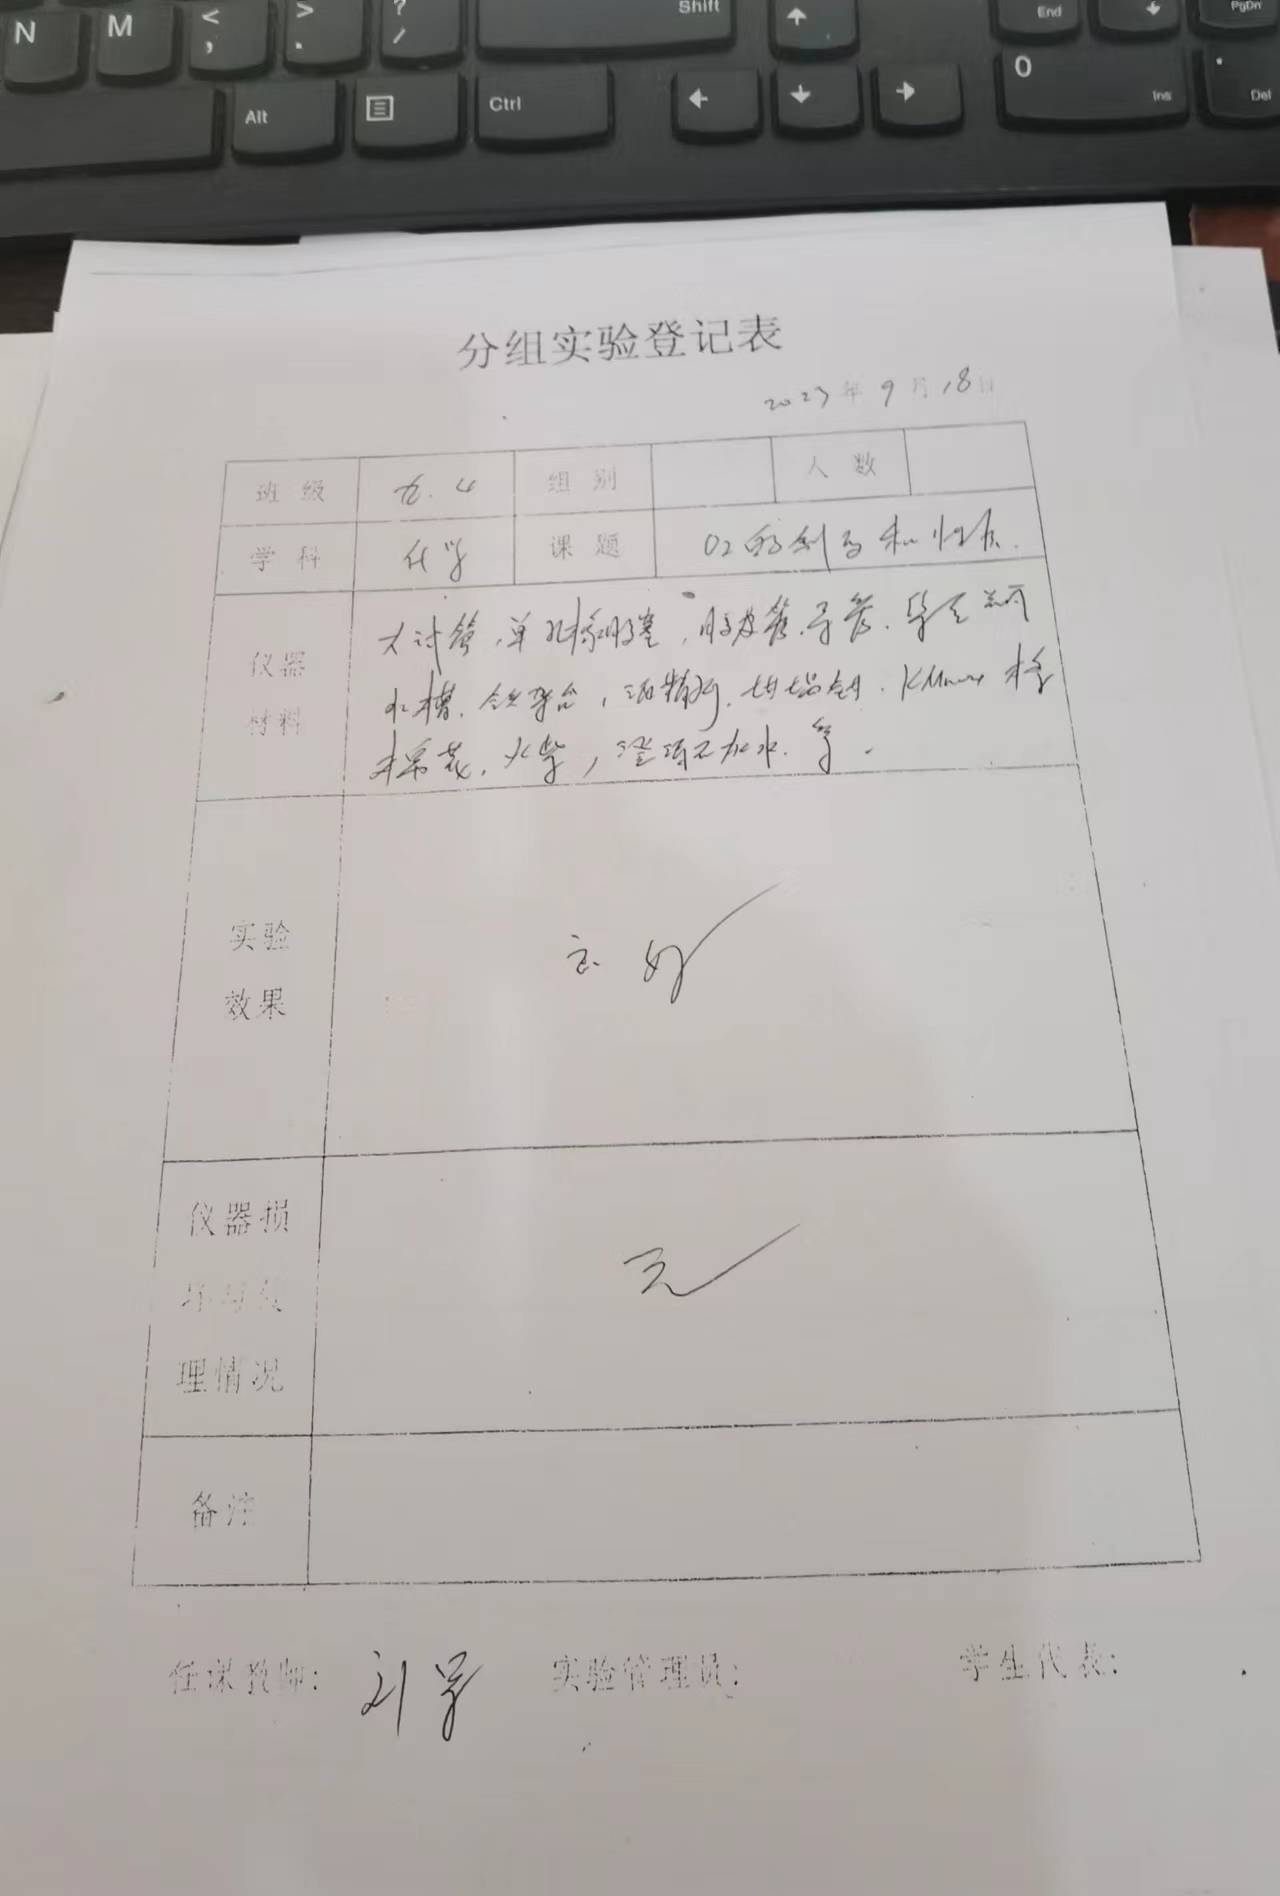 N M < , > . ? / Shift ↑ End ↓ PgDn
Alt Ctrl ← ↓ → 0 Ins . Del
分组实验登记表
2023年9月18日
班级 九.4 组别 人数
学科 化学 课题 O2的制取和性质.
仪器材料
大试管,单孔橡胶塞,胶皮管.导管.
水槽.铁架台,酒精灯.坩埚钳.
棉花.火柴,澄清石灰水.等.
实验效果
良好
仪器损坏与处理情况
无
备注
任课教师: 实验管理员: 学生代表: